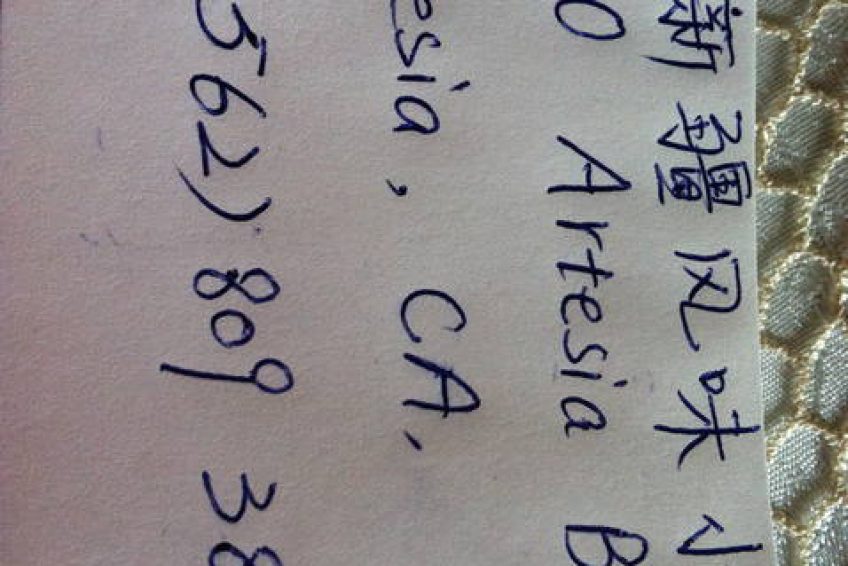 新疆风味小
0 Artesia B
esia, CA,
562) 809 38